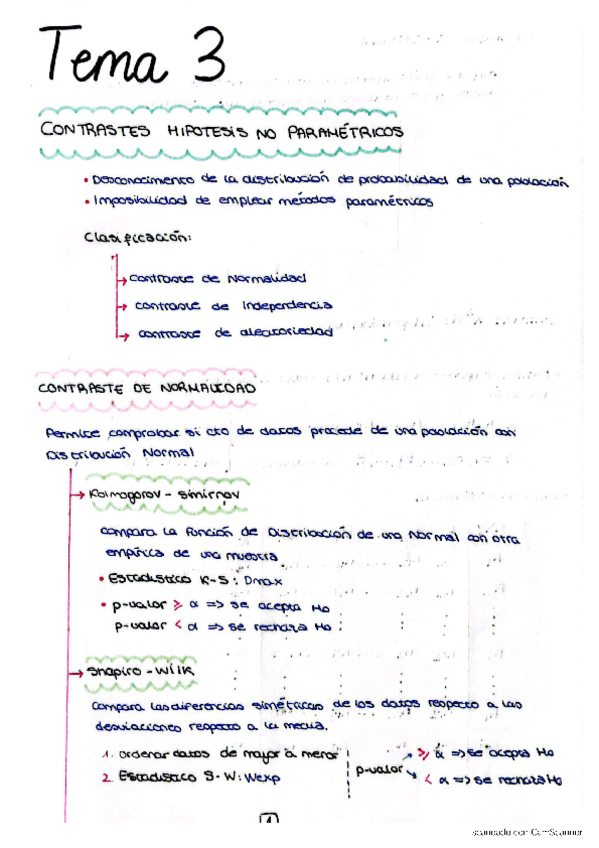 Tema 3
CONTRASTES HIPOTESIS NO PARAMÉTRICOS
• Desconocimiento de la distribución de probabilidad de una población
• Imposibilidad de emplear métodos paramétricos
Clasificación:
→ contraste de Normalidad
→ contraste de Independencia
→ contraste de aleatoriedad
CONTRASTE DE NORMALIDAD
Permite comprobar si cto de datos procede de una población con
Distribución Normal
→ Kolmogorov - Smirnov
compara la Función de Distribución de una Normal con otra
empírica de una muestra
• Estadístico K-S: Dmax
• p-valor ≥ α => se acepta Ho
p-valor < α => se rechaza Ho
→ Shapiro - Wilk
compara las diferencias simétricas de los datos respecto a las
desviaciones respecto a la media.
1. ordenar datos de mayor a menor
2. Estadístico S-W: Wexp
p-valor
≥ α => se acepta Ho
< α => se rechaza Ho
1
Escaneado con CamScanner